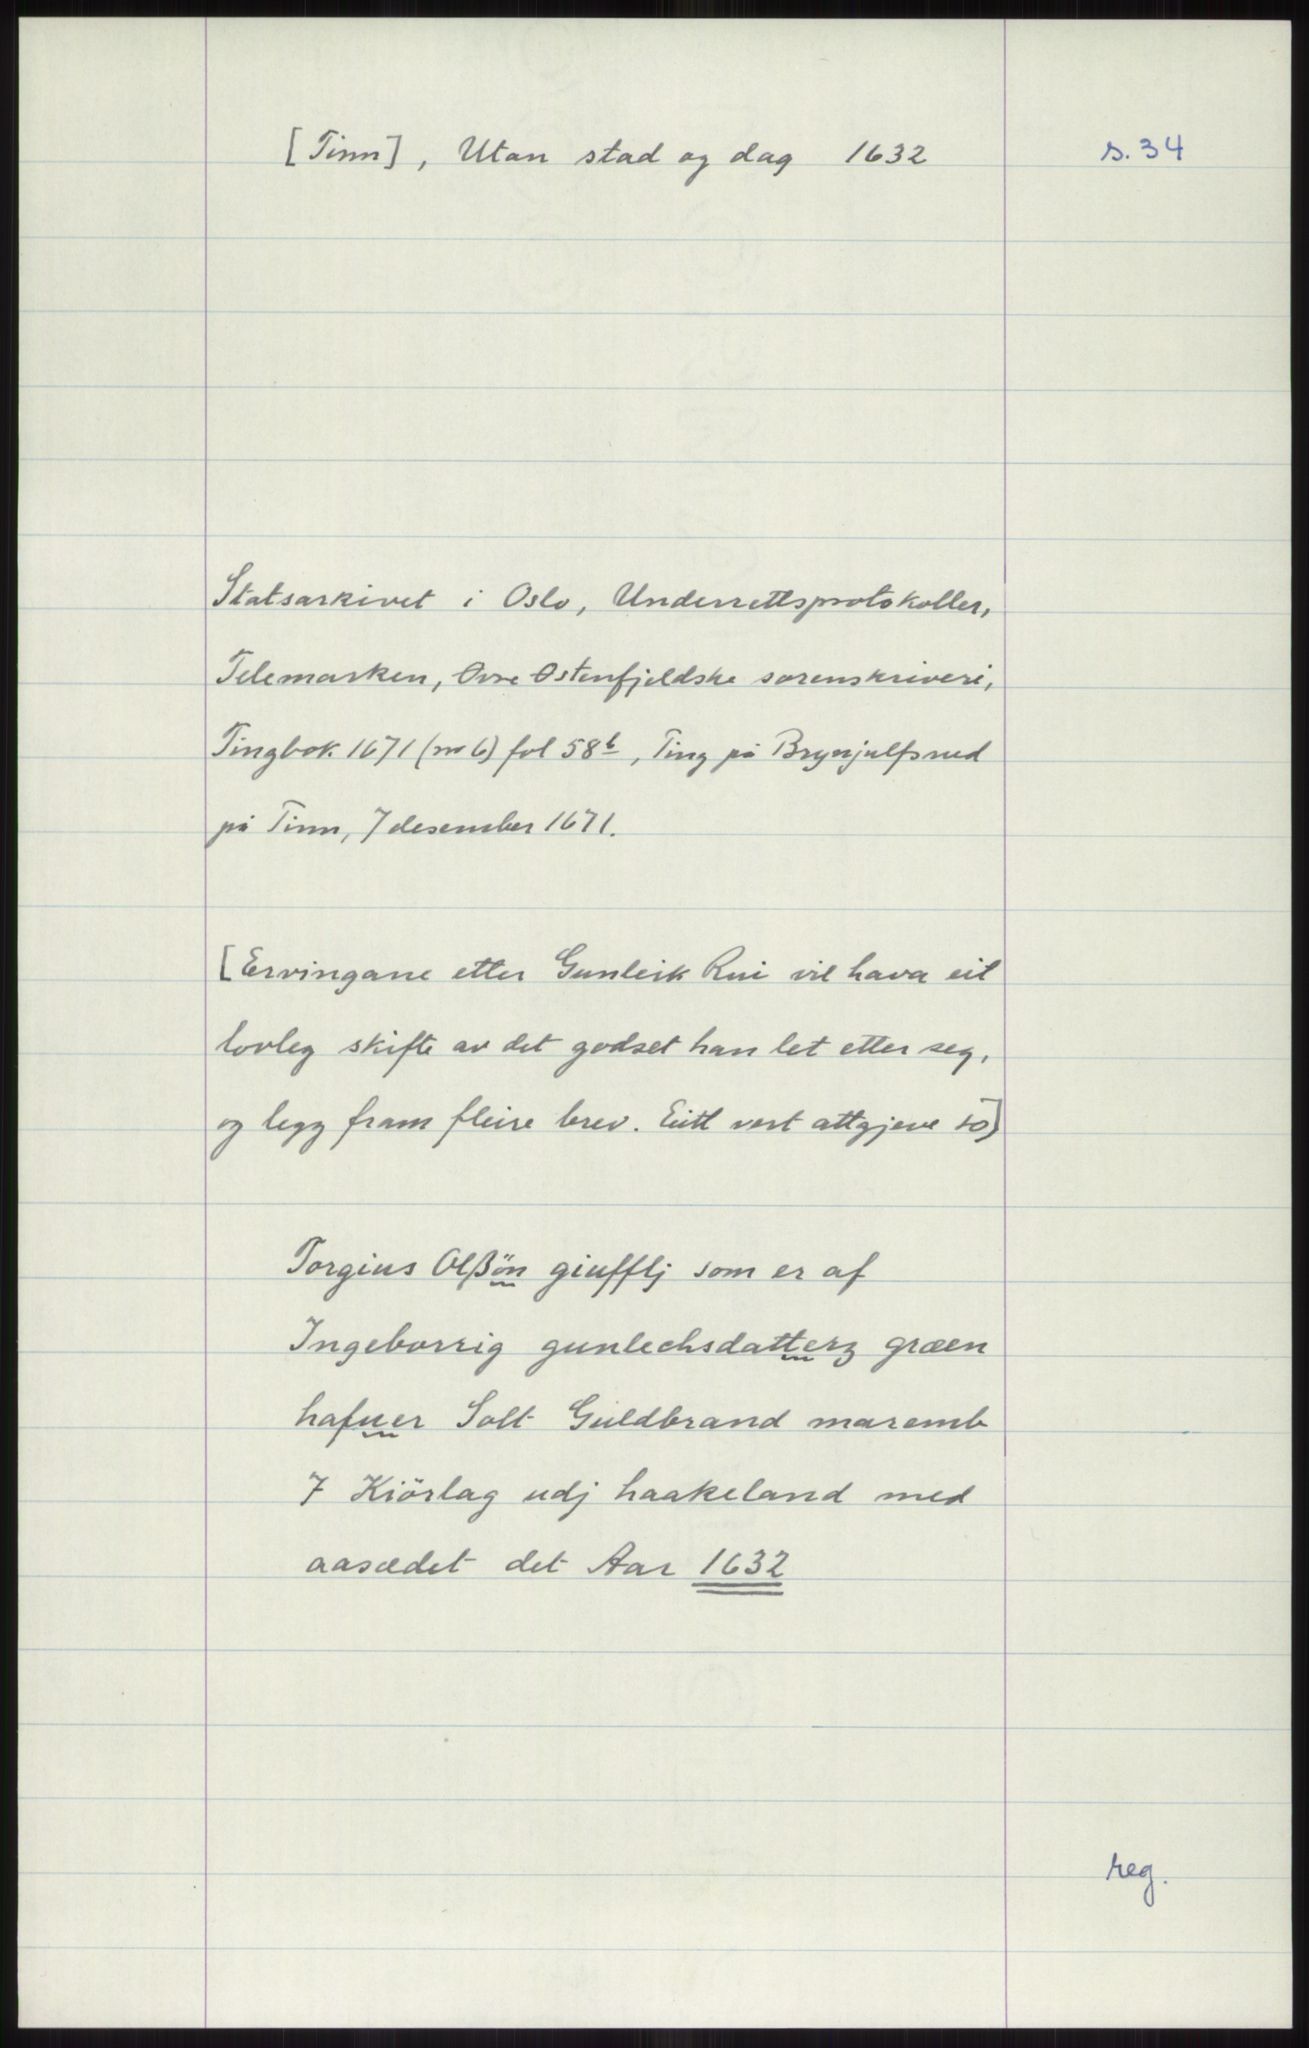 [Tinn], Utan stad og dag 1632
s. 34
Statsarkivet i Oslo, Underrettsprotokoller,
Telemarken, Øvre Østenfjeldske sorenskriveri,
Tingbok 1671 (nr 6) fol 58b, Ting på Brynjulfsrud
på Tinn, 7 desember 1671.
[Ervingane etter Gunleik Rui vil hava eit
lovleg skifte av det godset han let etter seg,
og legg fram fleire brev. Eitt vert attgjeve so]
Torgius Olßön giufflj som er af
Ingeborrig gunlechsdatterz græen
hafuer Solt Guldbrand maremb
7 Kiörlag udj haakeland med
aasædet det Aar 1632
reg.